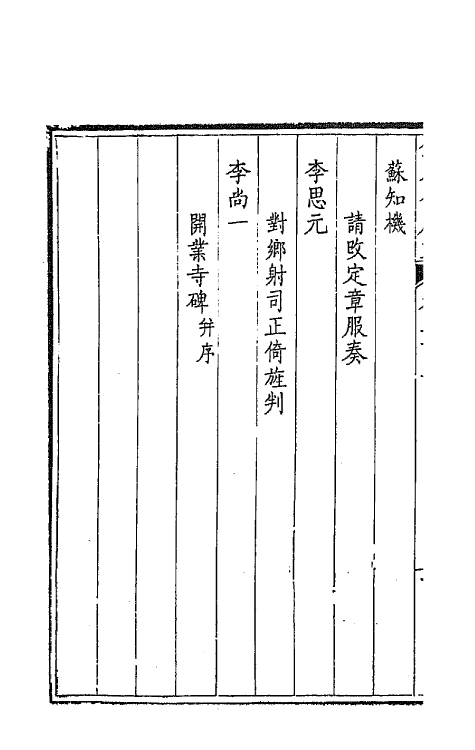 蘇知機
請改定章服奏
李思元
對鄉射司正倚旌判
李尚一
開業寺碑并序